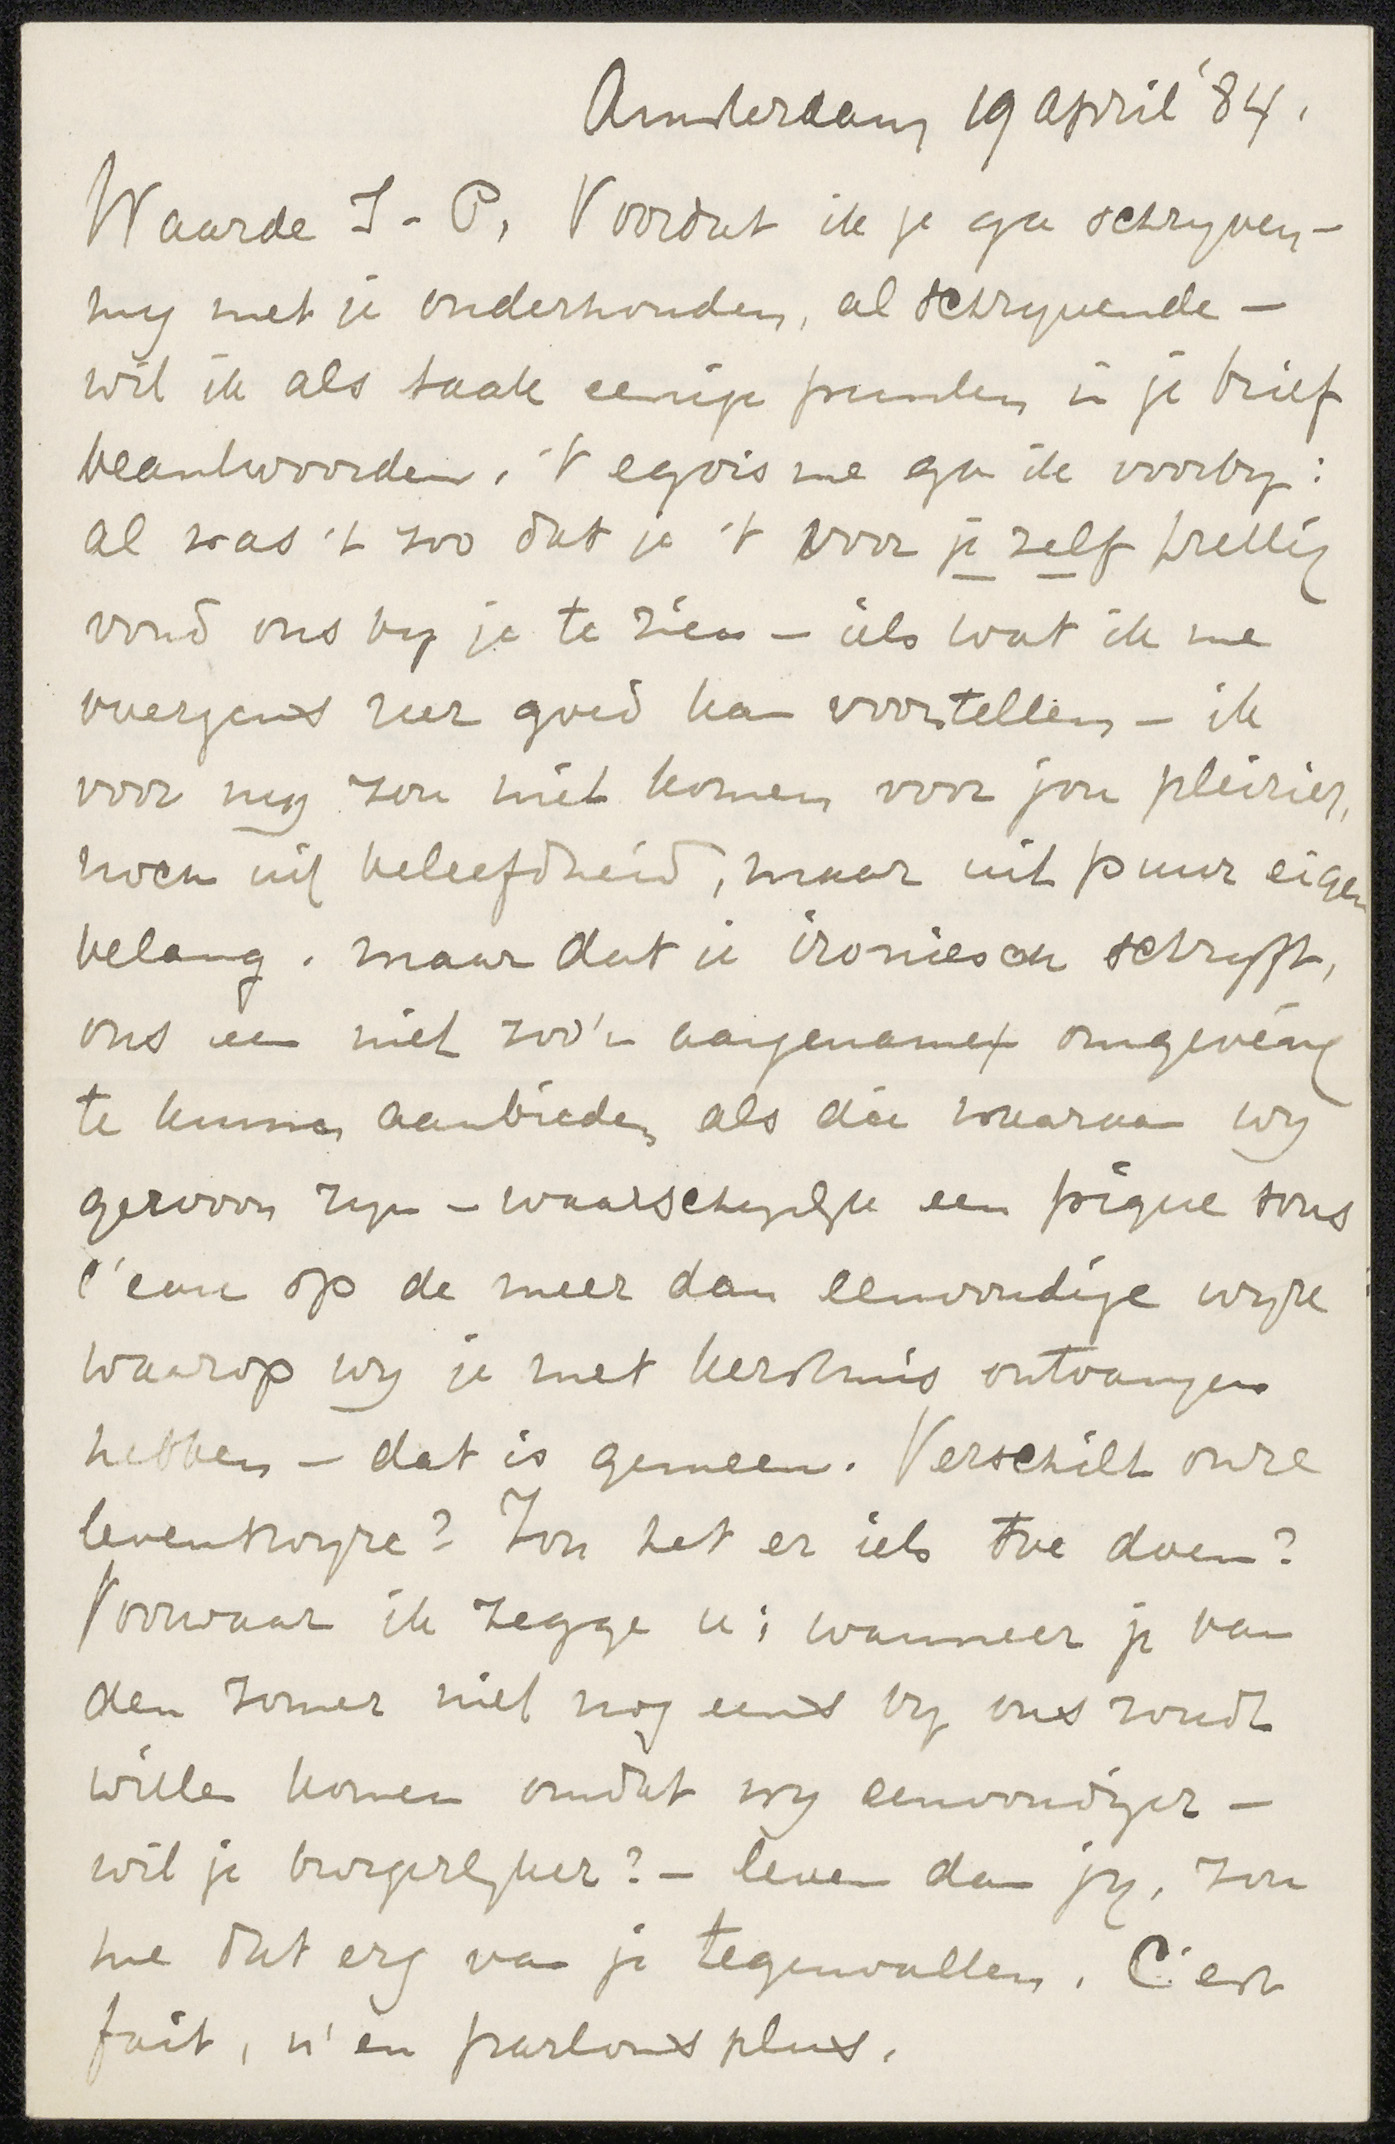 Amsterdam 19 april '84.
Waarde J-P, Voordat ik je ga schryven —
my met je onderhouden, al schryvende —
wil ik als taak eenige punten in je brief
beantwoorden. 't egoisme ga ik voorby:
al was 't zoo dat je 't voor je zelf prettig
vond ons by je te zien — iets wat ik me
overigens zeer goed kan voorstellen — ik
voor my zou niet komen voor jou pleizier,
noch uit beleefdheid, maar uit puur eigen
belang. maar dat je ironiesch schryft,
ons een niet zoo'n aangename omgeving
te kunnen aanbieden als die waaraan wy
gewoon zyn — waarschynlyk een pique sous
l'eau op de meer dan eenvoudige wyze
waarop wy je met kerstmis ontvangen
hebben — dat is gemeen. Verschilt onze
levenswyze? Zou het er iets toe doen?
Voorwaar ik zegge u; wanneer je van
den zomer niet nog eens by ons zoudt
willen komen omdat wy eenvoudiger —
wil je burgerlyker? — leven dan jy, zou
me dat erg van je tegenvallen. C'est
fait, n'en parlons plus.